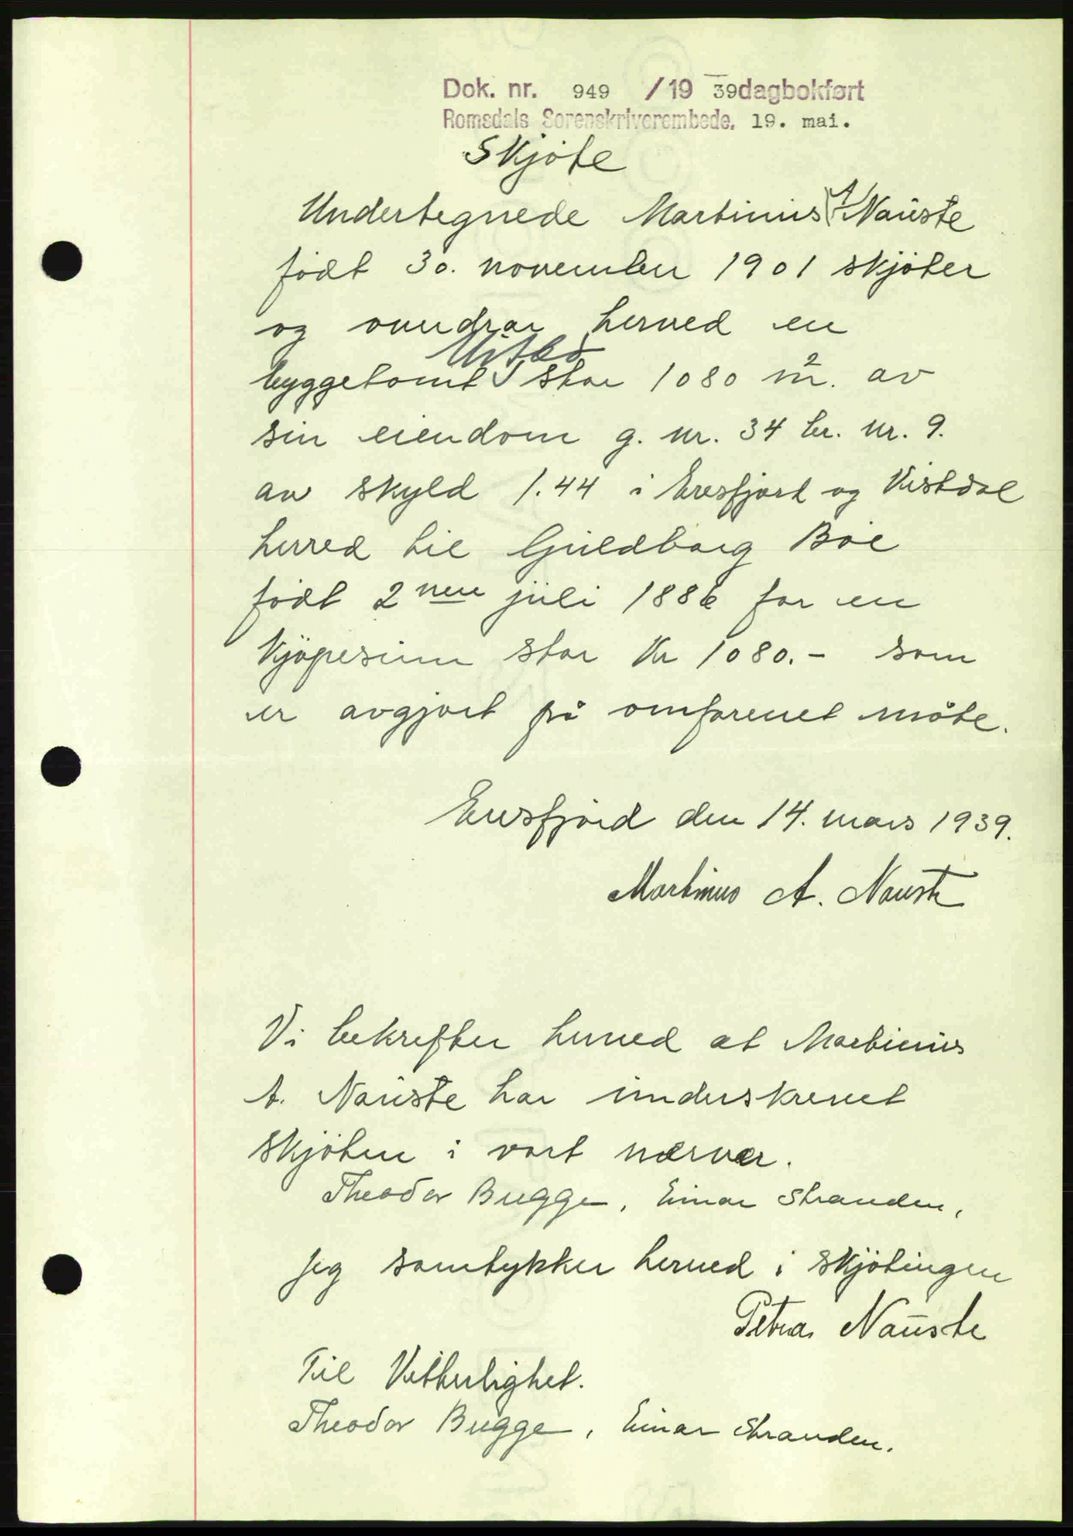 Dok. nr. 949 /19 39 dagbokført
Romsdals Sorenskriverembede, 19. mai.
Skjøte
Undertegnede Martinus A/ Nauste
født 30. november 1901 skjøter
og overdrar herved en
byggetomt Utbo stor 1080 m². av
sin eiendom g. nr. 34 br. nr. 9.
av skyld 1.44 i Eresfjord og Vistdal
herred til Guldborg Bøe
født 2nen juli 1886 for en
kjøpesum stor Kr 1080.- som
er avgjort på omforenet måte.
Eresfjord den 14. mars 1939.
Martinus A. Nauste
Vi bekrefter herved at Martinus
A. Nauste har underskrevet
skjøten i vort nærvær.
Theodor Bugge, Einar Stranden,
Jeg samtykker herved i skjøtingen
Petra Nauste
Til Vitterlighet.
Theodor Bugge, Einar Stranden.